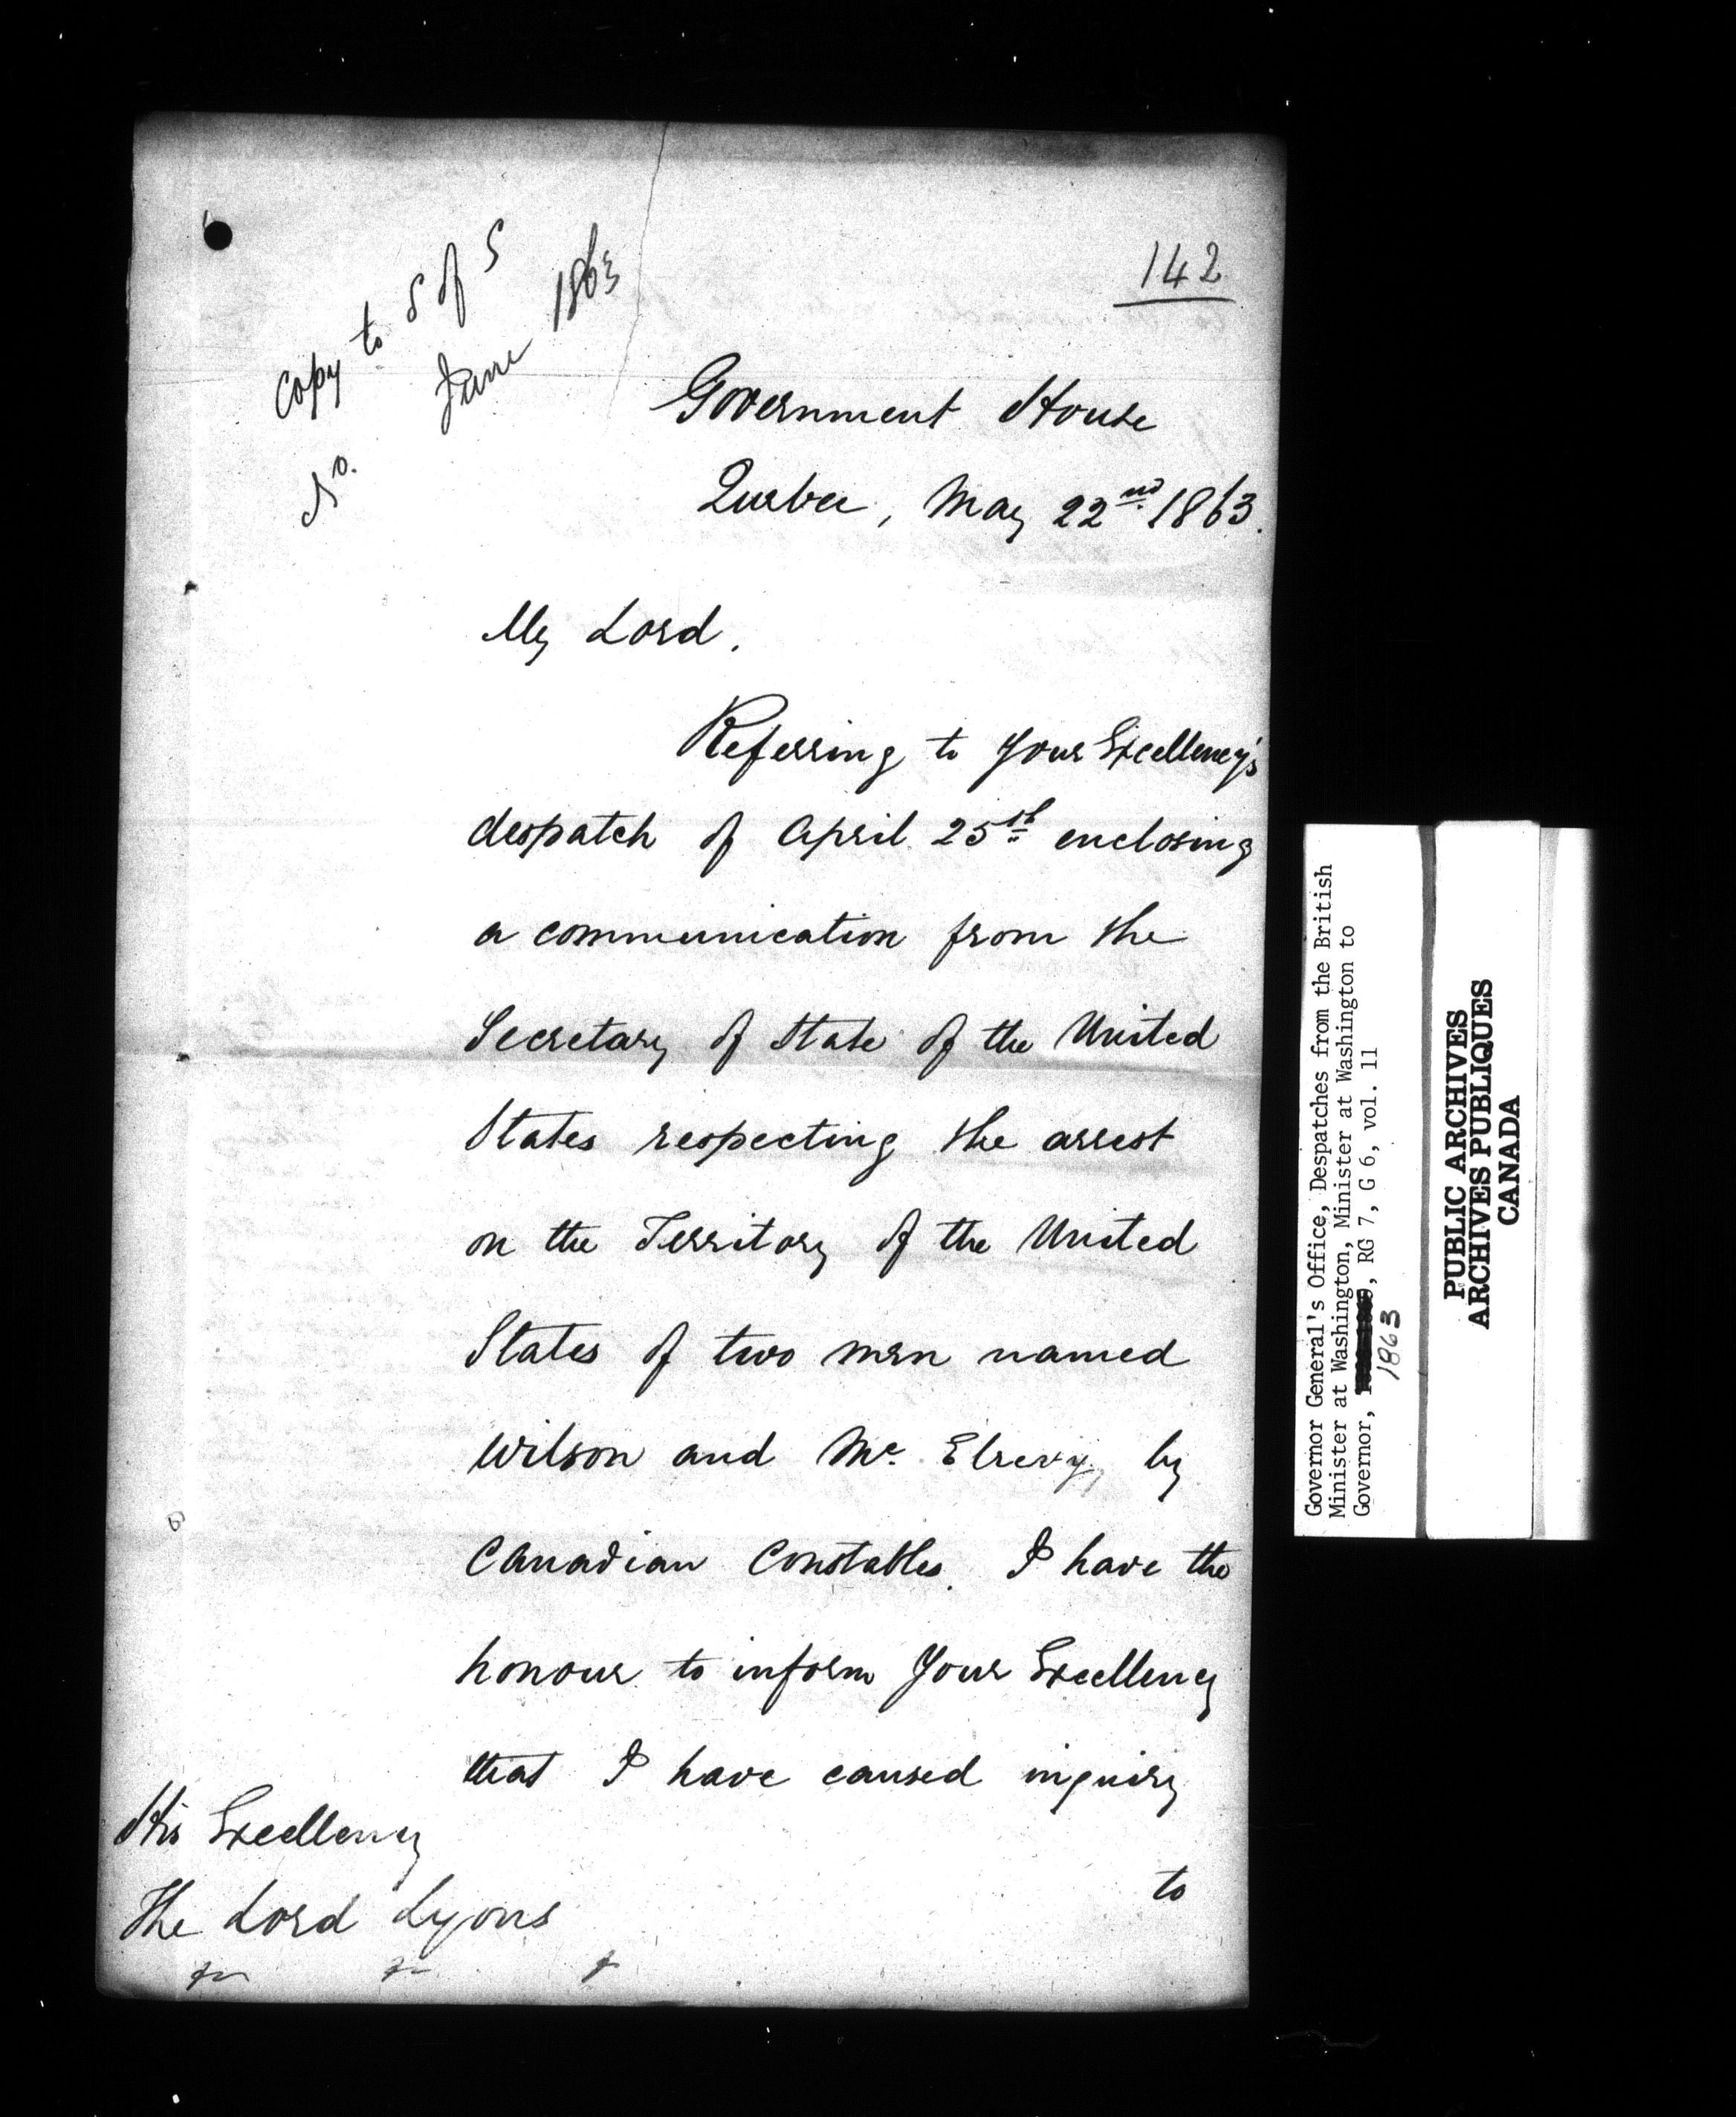 Copy to S of S
No. June 1863
142
Government House
Quebec, May 22nd 1863.
My Lord,
Referring to Your Excellency's
despatch of April 25th enclosing
a communication from the
Secretary of State of the United
States respecting the arrest
on the Territory of the United
States of two men named
Wilson and Mc Elrevy, by
Canadian Constables. I have the
honour to inform Your Excellency
that I have caused inquiry
to
His Excellency
The Lord Lyons
Governor General's Office, Despatches from the British
Minister at Washington, Minister at Washington to
Governor, RG 7, G 6, vol. 11
1863
PUBLIC ARCHIVES
ARCHIVES PUBLIQUES
CANADA